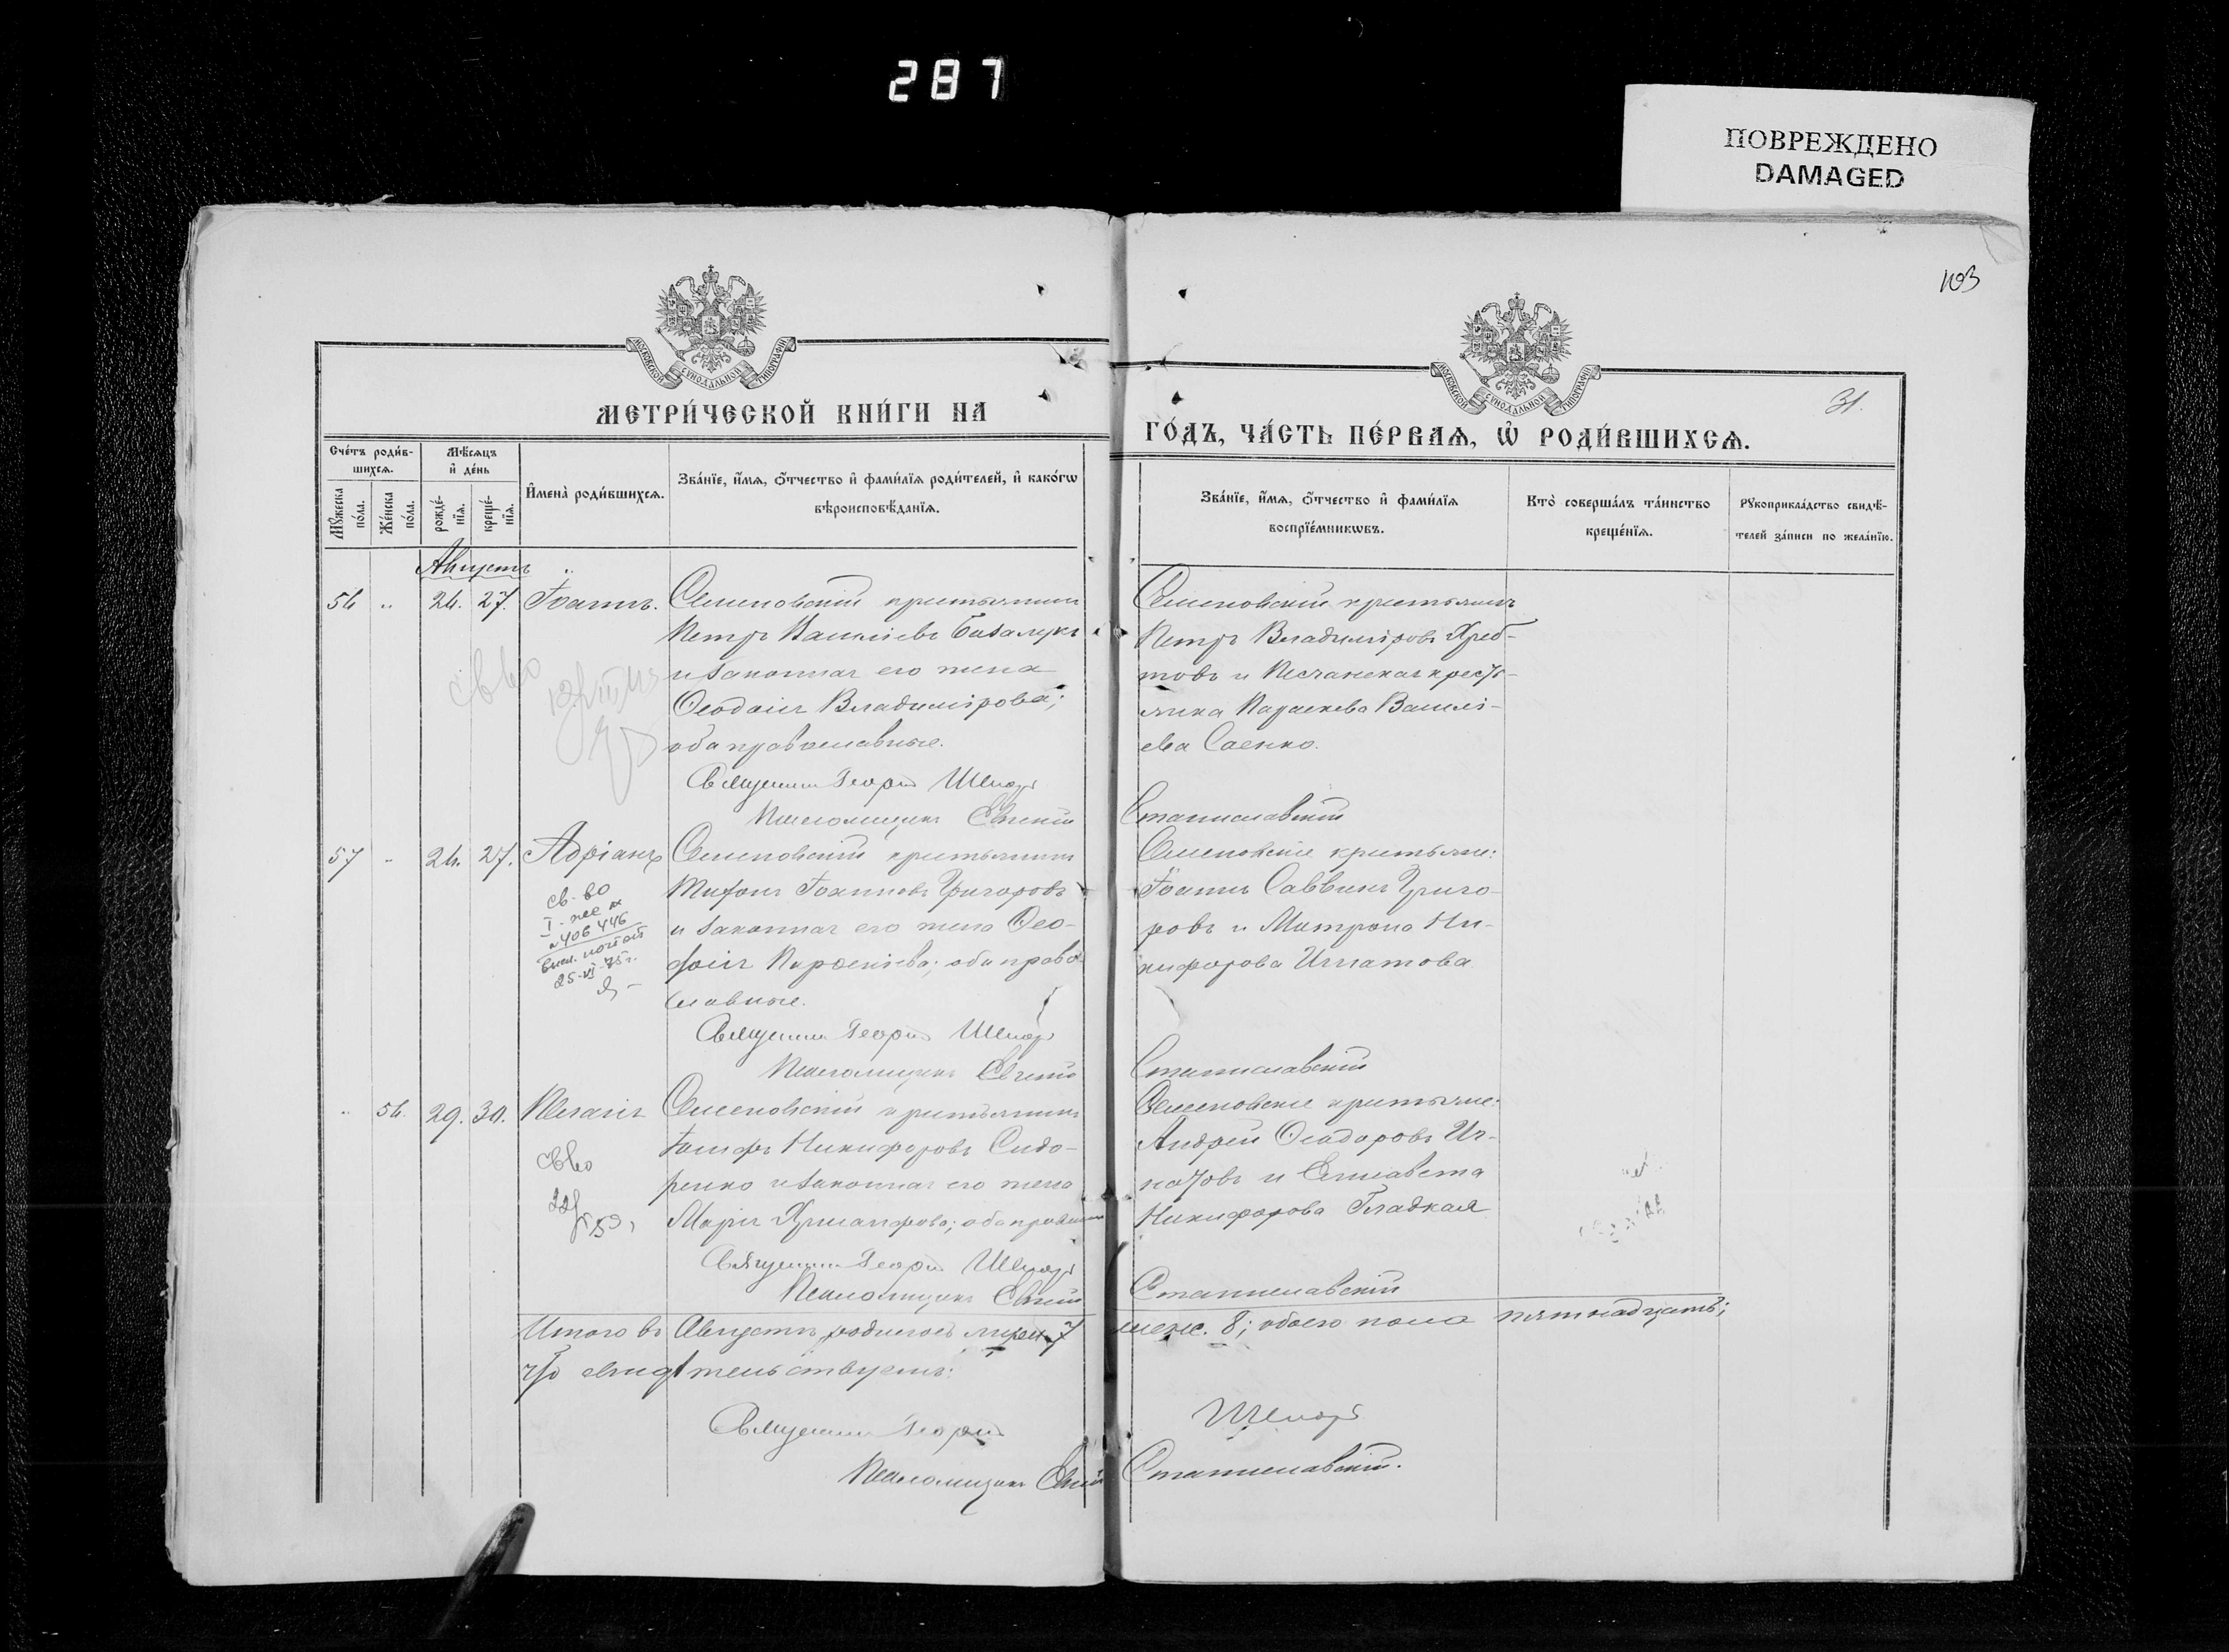 287
ПОВРЕЖДЕНО
DAMAGED
103
МОСКОВСКОЙ СУНОДАЛЬНОЙ ТИПОГРАФІИ
МОСКОВСКОЙ СУНОДАЛЬНОЙ ТИПОГРАФІИ
31.
МЕТРИ́ЧЕСКОЙ КНИ́ГИ НА
ГО́ДЪ, ЧА́СТЬ ПЕ́РВАѦ, Ѽ РОДИ́ВШИХСѦ.
Сче́тъ роди́в-
шихсѧ.
Мѣ́сѧцъ
и҆ де́нь
Мꙋ́жеска
по́ла.
Же́нска
по́ла.
рожде́-
нїѧ.
креще́-
нїѧ.
И҆мена̀ роди́вшихсѧ.
Зва́нїе, и҆́мѧ, ѻ҆́тчество и҆ фами́лїѧ роди́телей, и҆ како́гѡ
вѣроисповѣ́данїѧ.
Зва́нїе, и҆́мѧ, ѻ҆́тчество и҆ фами́лїѧ
воспрїе́мникѡвъ.
Кто̀ соверша́лъ та́инство
креще́нїѧ.
Рꙋкоприкла́дство свидѣ́-
телей за́писи по жела́нїю.
Августъ
56 „ 24. 27. Іоаннъ. Семеновскій крестьянинъ
Петръ Василіевъ
и законная его жена
Ѳеодосія Владимірова;
оба православные.
Священникъ Георгій
Псаломщикъ Евгеній
Семеновскій крестьянинъ
Петръ Владиміровъ Хреб-
товъ и Песчанская кресть-
янка Параскева Василі-
ева Саенко.
Станиславскій
57 „ 24. 27. Адріанъ Семеновскій крестьянинъ
Тихонъ Іоанновъ Григоровъ
и законная его жена Ѳео-
досія Парѳеніева; оба право-
славные.
Священникъ Георгій
Псаломщикъ Евгеній
св-во
406446
25-VI-75г.
Семеновскіе крестьяне:
Іоаннъ Саввинъ Григо-
ровъ и Матрона Ни-
кифорова Игнатова.
Станиславскій
„ 56. 29. 30. Пелагія Семеновскій крестьянинъ
Іосифъ Никифоровъ Сидо-
ренко и законная его жена
Марія Хрисанфова; оба правосл
Священникъ Георгій
Псаломщикъ Евгеній
св-во
Семеновскіе крестьяне:
Андрей Ѳеодоровъ Иг-
натовъ и Елисавета
Никифорова Гладкая
Станиславскій
Итого въ Августѣ родилось мужск. 7 женс. 8; обоего пола пятнадцать;
что свидѣтельствуемъ:
Священникъ Георгій
Псаломщикъ Евгеній Станиславскій.